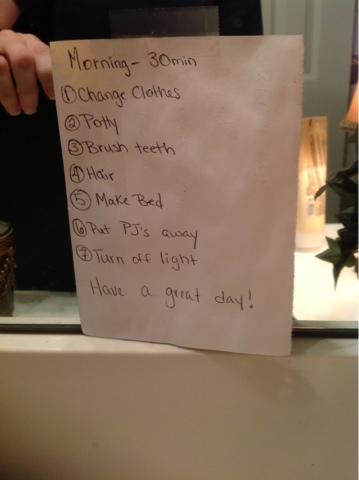 Morning - 30min
① Change Clothes
② Potty
③ Brush teeth
④ Hair
⑤ Make Bed
⑥ Put PJ's away
⑦ Turn off light
Have a great day!